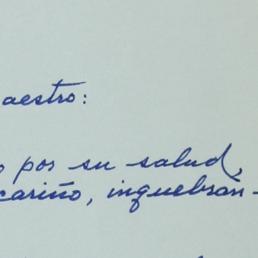 aestro:
o por su salud,
cariño, inquebran-